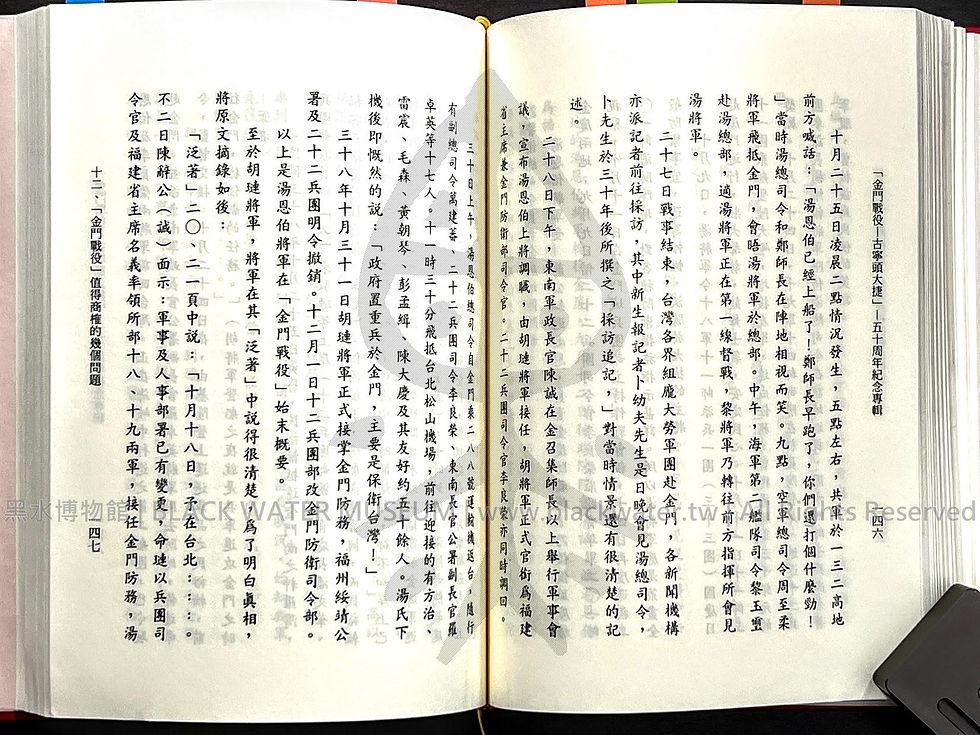 「金門戰役—古寧頭大捷」—五十周年紀念專輯
一四六
十月二十五日凌晨二點情況發生，五點左右，共軍於一三二高地
前方喊話：「湯恩伯已經上船了！鄭師長早跑了，你們還打個什麼勁！
」當時湯總司令和鄭師長在陣地相視而笑。九點，空軍總司令周至柔
將軍飛抵金門，會晤湯將軍於總部。中午，海軍第二艦隊司令黎玉璽
赴湯總部，適湯將軍正在第一線督戰，黎將軍乃轉往前方指揮所會見
湯將軍。
二十七日戰事結束，台灣各界組龐大勞軍團赴金門，各新聞機構
亦派記者前往採訪，其中新生報記者卜幼夫先生是日晚會見湯總司令，
卜先生於三十年後所撰之「採訪追記，」對當時情景還有很清楚的記
述。
二十八日下午，東南軍政長官陳誠在金召集師長以上舉行軍事會
議，宣布湯恩伯上將調職，由胡璉將軍接任，胡將軍正式官銜為福建
省主席兼金門防衛部司令官。二十二兵團司令官李良榮亦同時調回。
三十日上午，湯恩伯總司令自金門乘二八八號運輸機返台，隨行
有副總司令萬建蕃、二十二兵團司令李良榮、東南長官公署副長官羅
卓英等十七人。十一時三十分飛抵台北松山機場，前往迎接的有方治、
雷震、毛森、黃朝琴、彭孟緝、陳大慶及其友好約五十餘人。湯氏下
機後即慨然的說：「政府置重兵於金門，主要是保衛台灣！」
三十八年十月三十一日胡璉將軍正式接掌金門防務，福州綏靖公
署及二十二兵團明令撤銷。十二月一日十二兵團部改金門防衛司令部。
以上是湯恩伯將軍在「金門戰役」始末概要。
至於胡璉將軍，將軍在其「泛著」中說得很清楚，為了明白真相，
將原文摘錄如後：
「泛著」二〇、二一頁中說：「十月十八日，予在台北：……。
不二日陳辭公（誠）面示：軍事及人事部署已有變更，命璉以兵團司
令官及福建省主席名義率領所部十八、十九兩軍，接任金門防務，湯
十二、「金門戰役」值得商榷的幾個問題
一四七
黑水博物館 | BLACK WATER MUSEUM | www.blackwater.tw All Rights Reserved